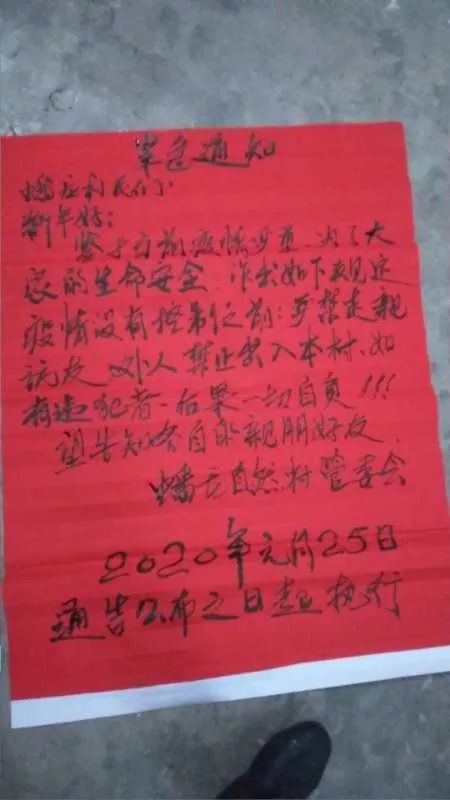 紧急通知
村民们:
新年好:
鉴于目前疫情严重,为了大
家的生命安全,作出如下规定
疫情没有控制之前:严禁走亲
访友,外人禁止出入本村,如
有违犯者,后果一切自负!!!
望告知各自的亲朋好友,
自然村管委会
2020年元月25日
通告公布之日起执行